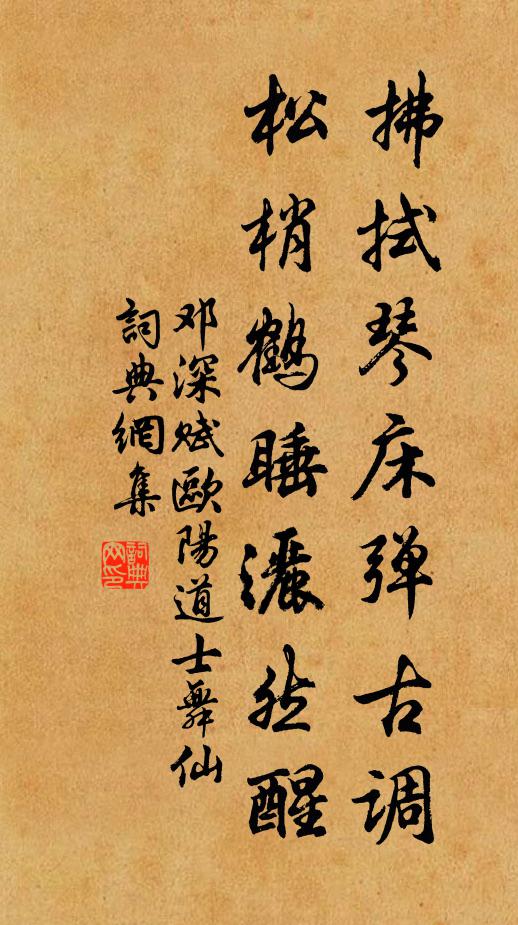 拂拭琴床弹古调
松梢鹤睡洒然醒
邓深赋歐陽道士舞仙
詞典網集
詞典網印